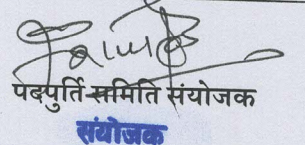 पदपुर्ति समिति संयोजक
संयोजक